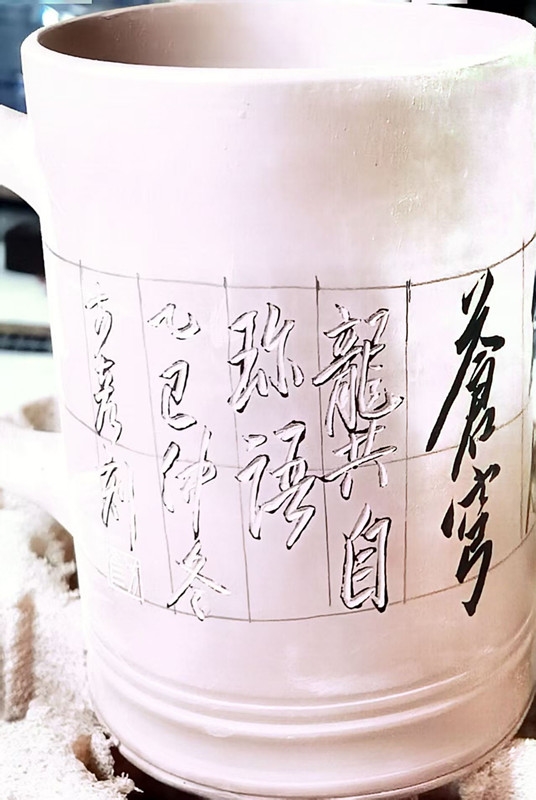 蒼穹
龍共自
珎語
乙巳仲冬
方亮刻